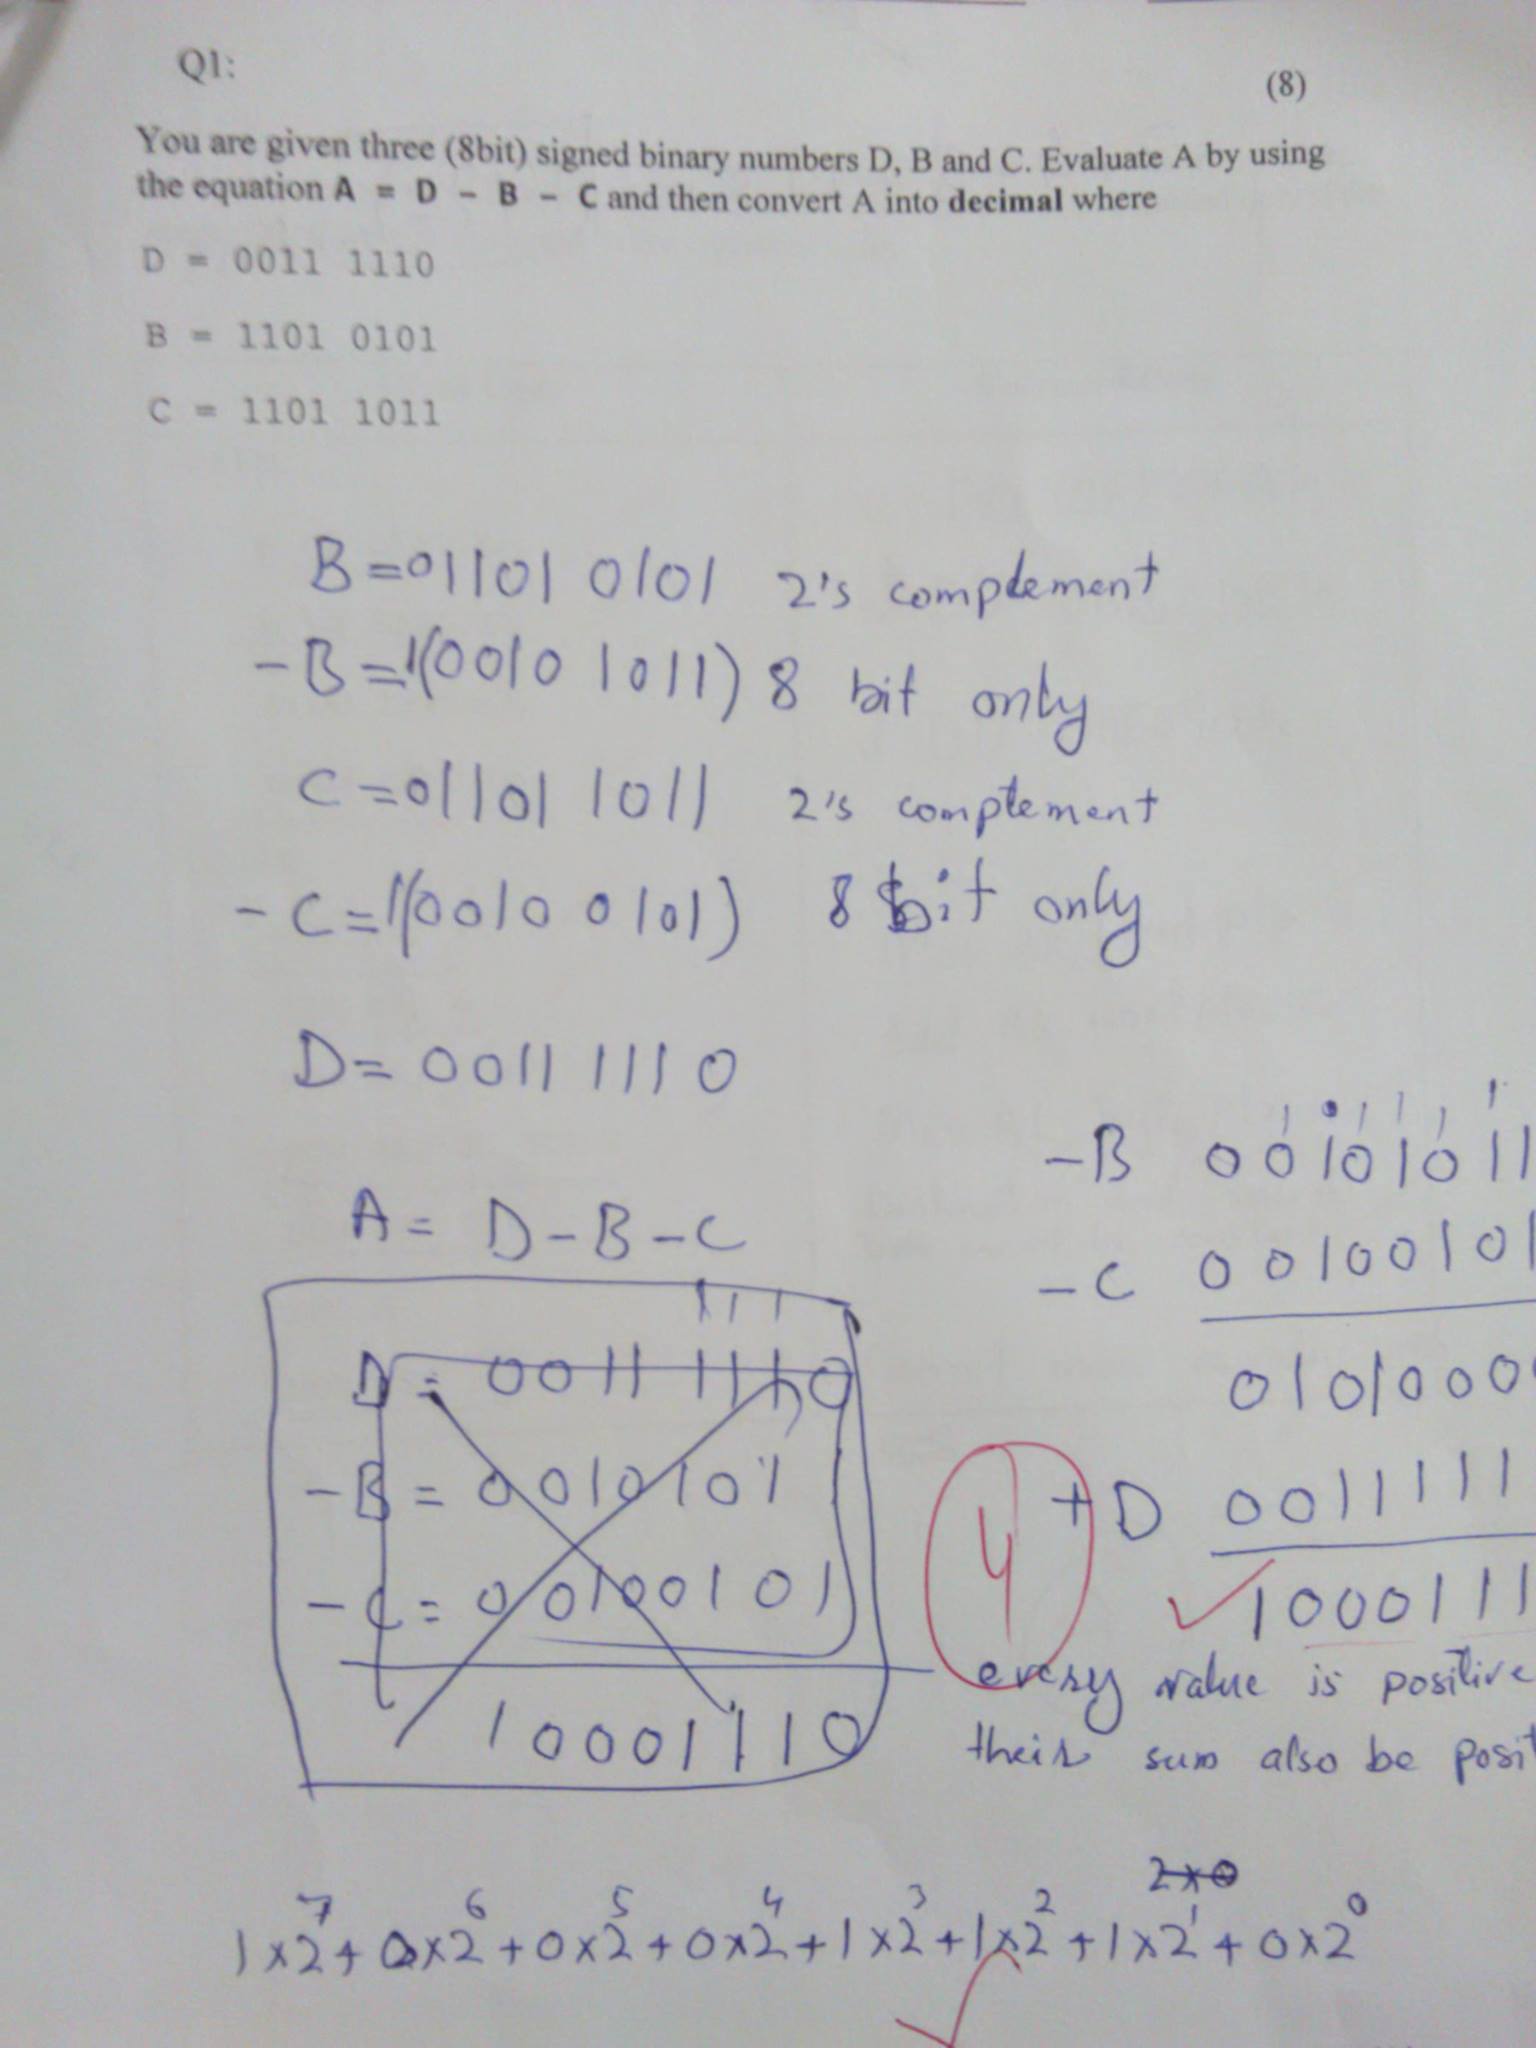 Q1:
(8)
You are given three (8bit) signed binary numbers D, B and C. Evaluate A by using
the equation A = D - B - C and then convert A into decimal where
D = 0011 1110
B = 1101 0101
C = 1101 1011
B = 01101 0101 2's complement
-B = 1(0010 1011) 8 bit only
C = 01101 1011 2's complement
-C = 1(0010 0101) 8 bit only
D = 0011 1110
A = D - B - C
1 1 1
D = 0011 1110
-B = 0010101
-C = 00100101
10001110
-B 00101011
-C 00100101
0101000
+ D 0011111
1000111
4
every value is positive
their sum also be
2x0
1x2^7 + 0x2^6 + 0x2^5 + 0x2^4 + 1x2^3 + 1x2^2 + 1x2^1 + 0x2^0